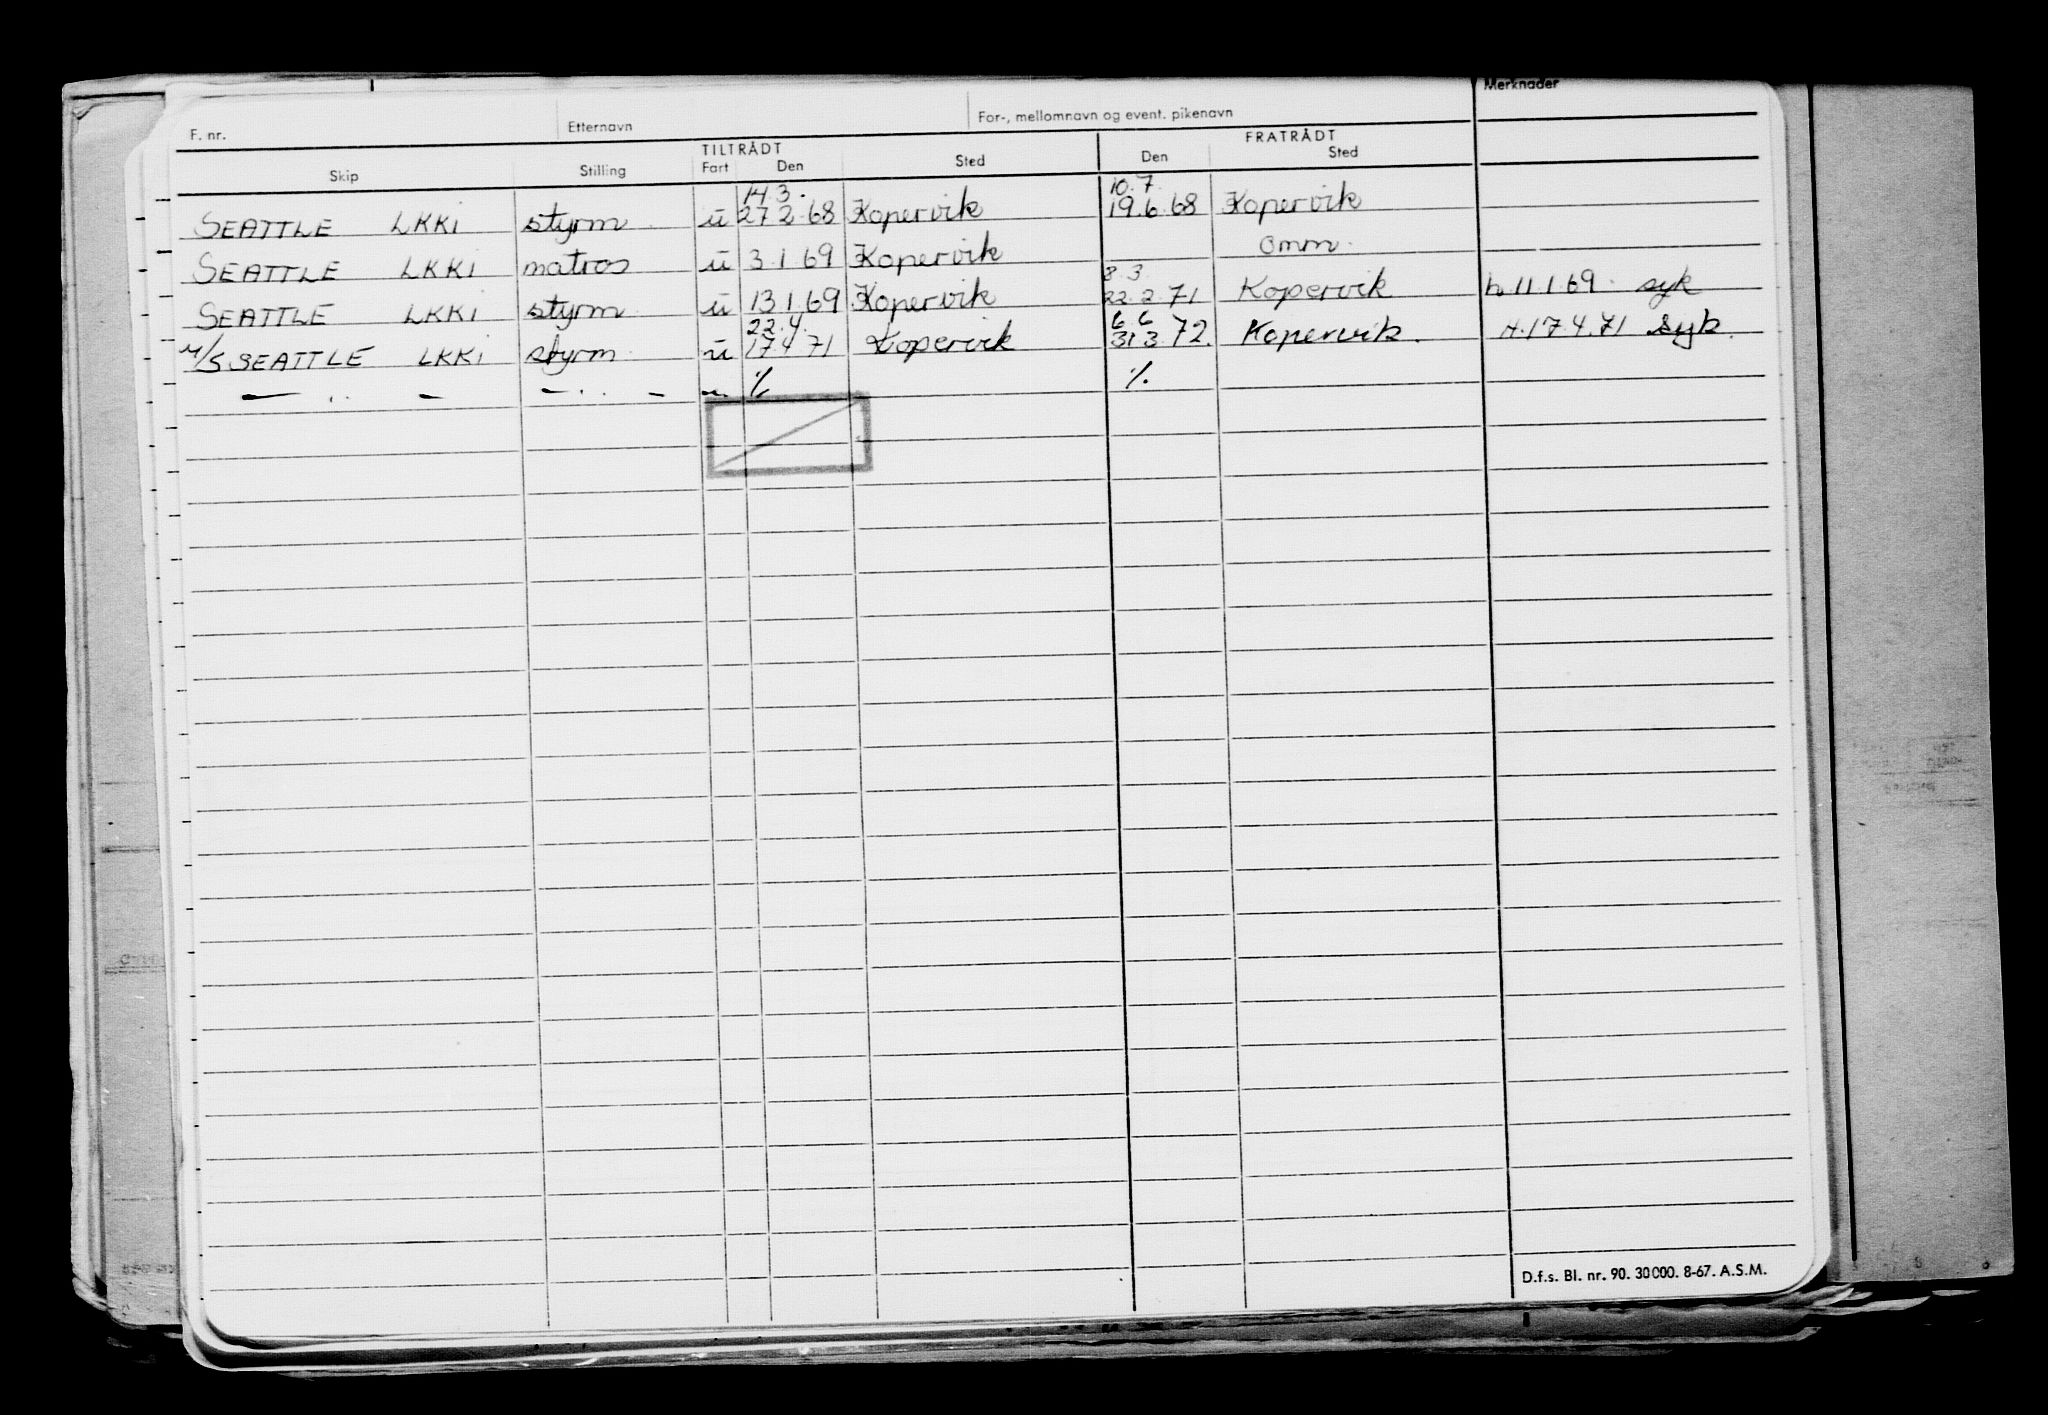 Merknader
F. nr. Etternavn For-, mellomnavn og event. pikenavn
TILTRÅDT FRATRÅDT
Skip Stilling Fart Den Sted Den Sted
14.3. 10.7.
SEATTLE LKKI styrm u 27.2.68 Kopervik 19.6.68 Kopervik
SEATTLE LKKI matros u 3.1.69 Kopervik Omm.
8.3
SEATTLE LKKI styrm u 13.1.69 Kopervik 22.2.71 Kopervik h. 11.1.69. syk
22.4. 6.6
M/S SEATTLE LKKI styrm u 17.4.71 Kopervik 31.3.72. Kopervik. H. 17.4.71 Syk.
— .. — — .. — u % %
D.f.s. Bl. nr. 90. 30000. 8-67. A.S.M.